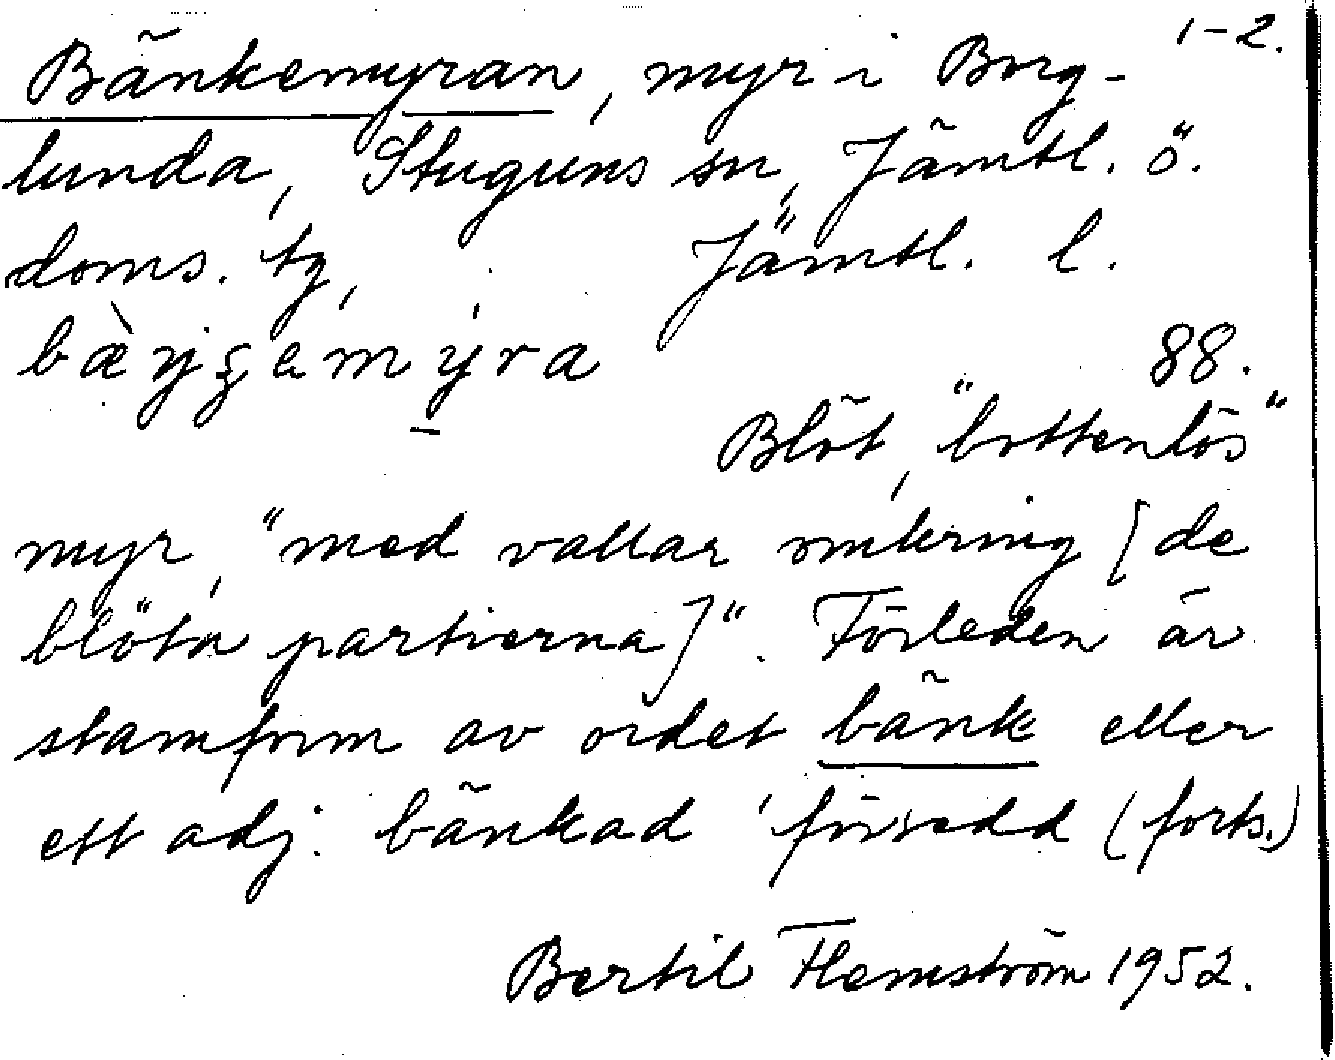 1-2.
Bänkemyran, myr i Borg-
lunda, Stuguns sn, Jämtl. ö.
doms. tg, Jämtl. l.
88.
Blöt, "bottenlös"
myr, "med vallar omkring [de
blöta partierna]". Förleden är
stamform av ordet bänk eller
ett adj. bänkad 'försedd (forts.)
Bertil Flemström 1952.